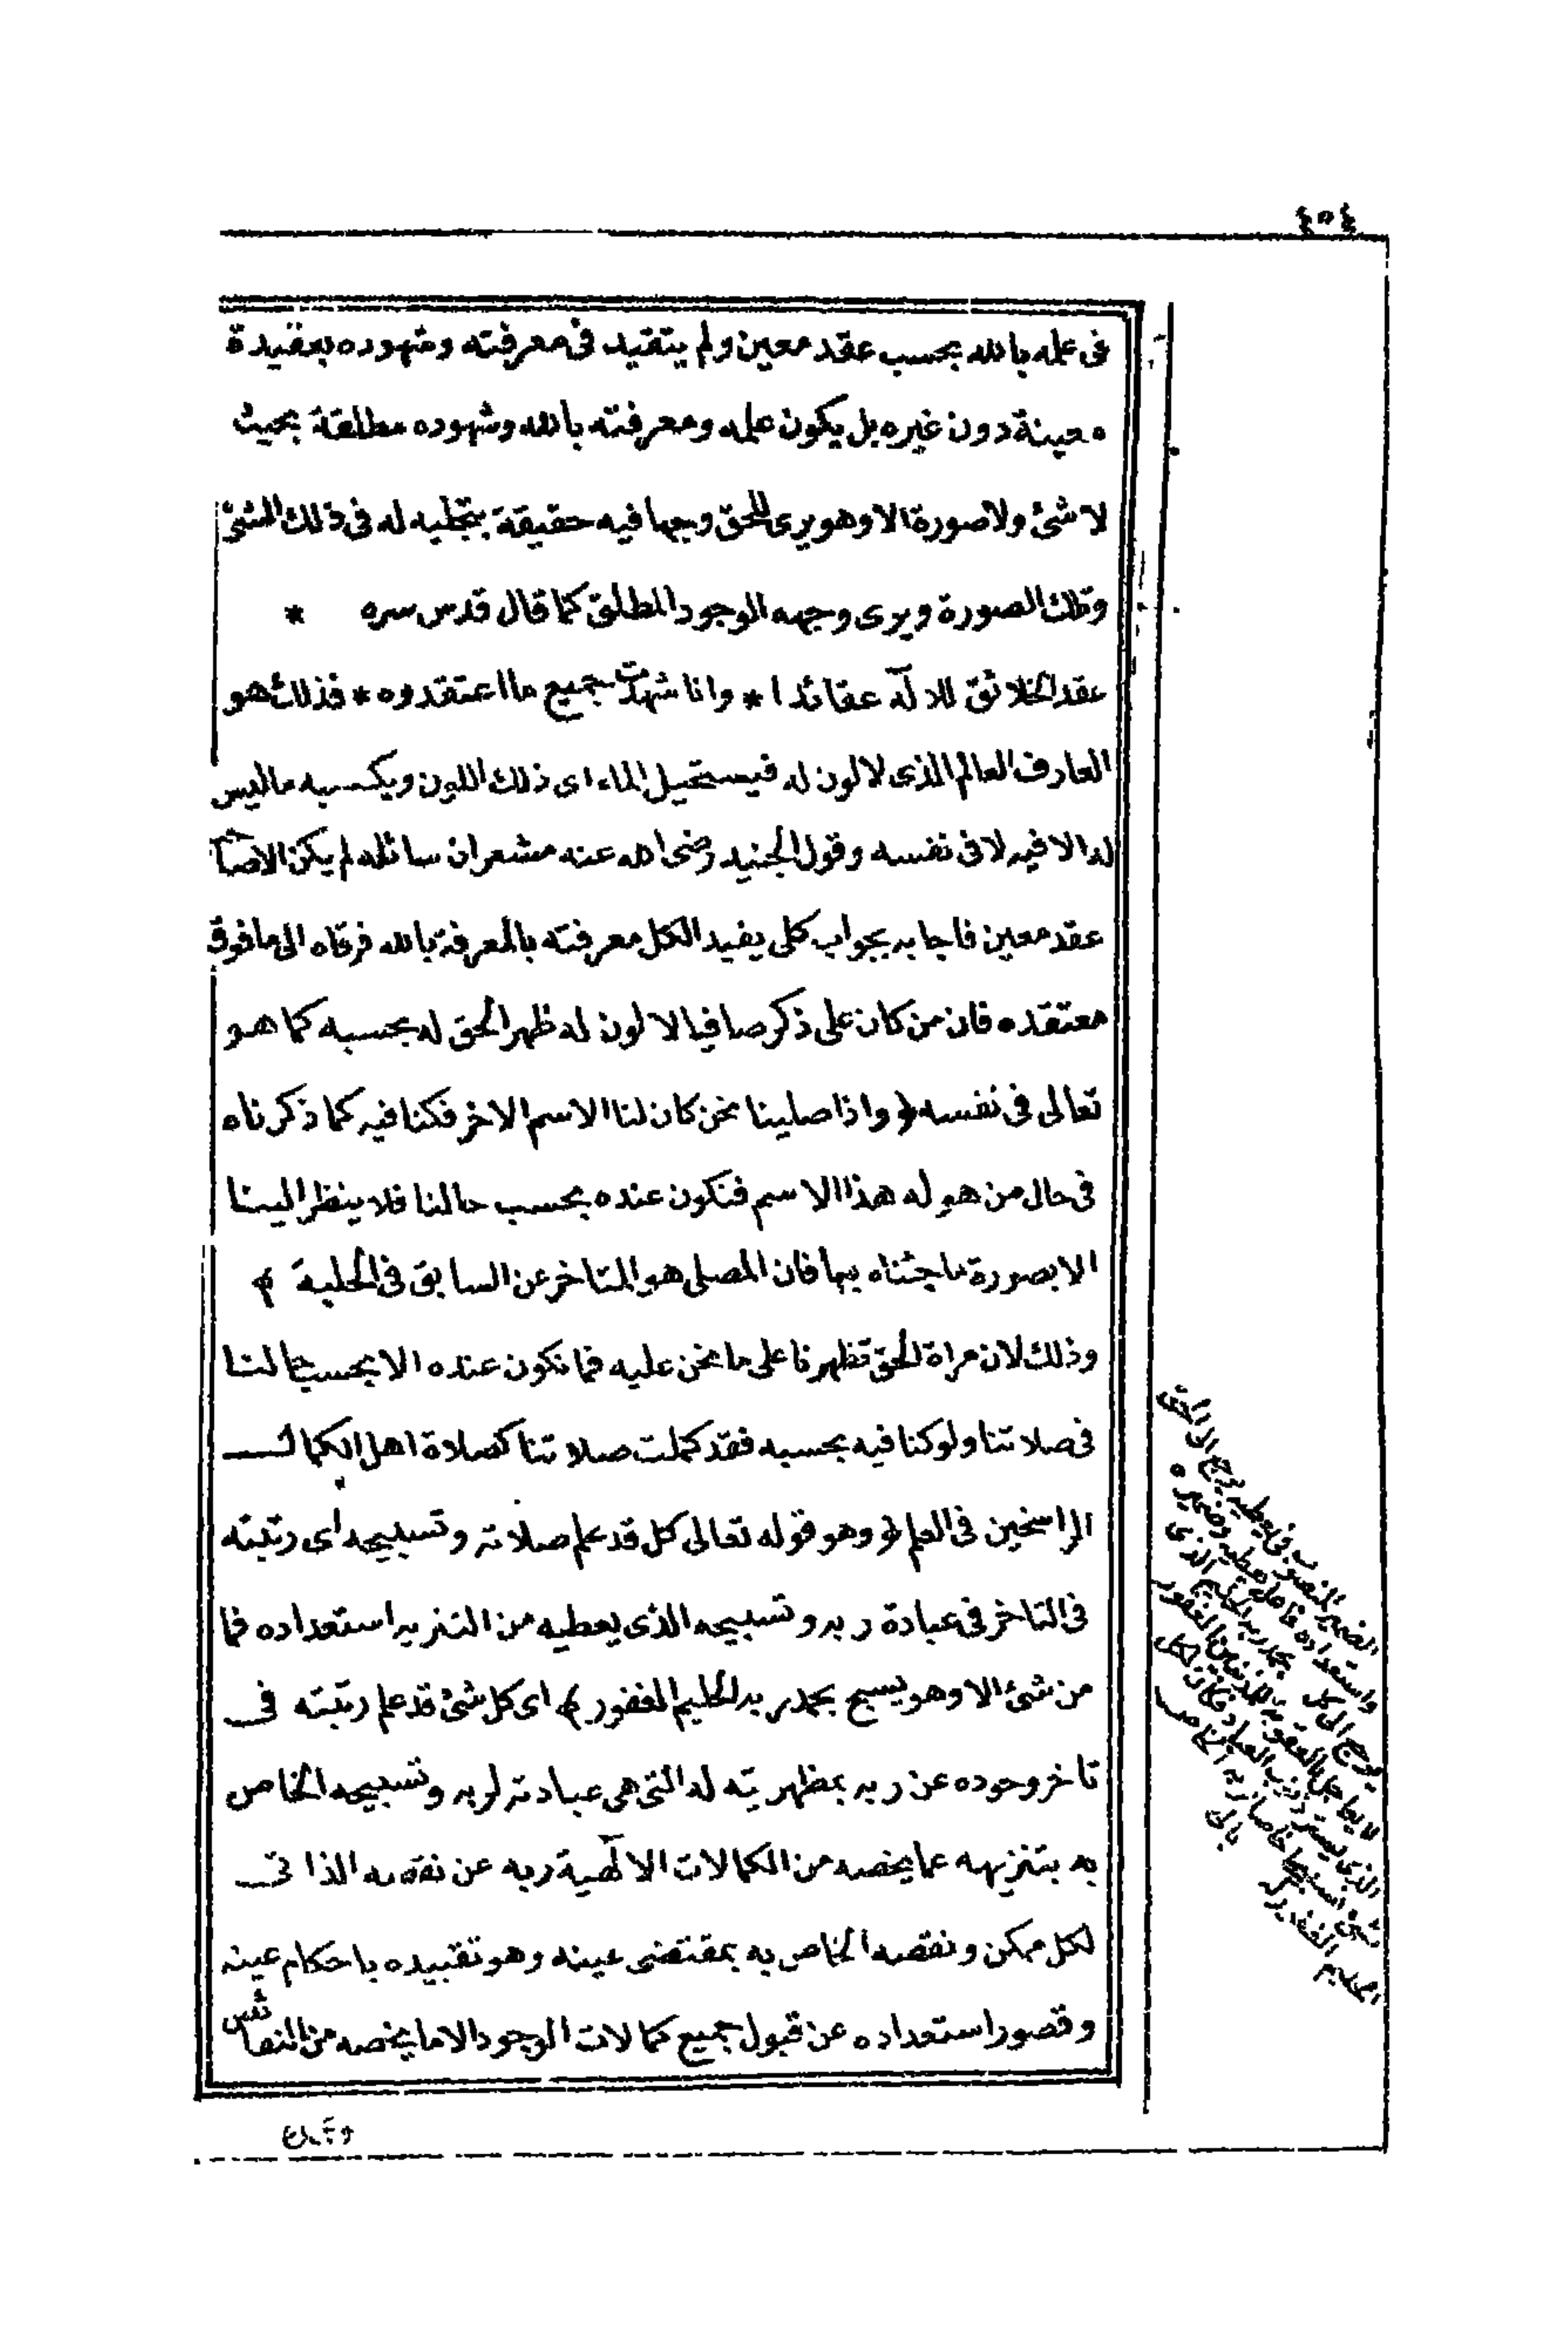 ٤٥٤
فى علمه بالله بحسب عقد معين ولم يتقيد فى معرفته وشهوده بعقيدة
معينة دون غيره بل يكون علمه ومعرفته بالله وشهوده مطلقة بحيث
لا شئ ولا صورة الا وهو يرى للحق وجها فيه حقيقة بتجليه له فى ذلك الشئ
وتلك الصورة ويرى وجهه الوجود المطلق كما قال قدس سره *
عقد الخلائق للاله عقائدا * وانا شهدت بجميع ما اعتقدوه * فذلك هو
العارف العالم الذى لا لون له فيستحيل الماء اى ذلك اللون ويكسبه ما ليس
له الا فيه لا فى نفسه وقول الجنيد رضى الله عنه مشعر ان سائله لم يكن الا صاحب
عقد معين فاجابه بجواب كلى يفيد الكل معرفته بالمعرفة بالله فرقاه الى ما فوق
معتقده فان من كان على ذكر صافيا لا لون له ظهر الحق له بحسبه كما هو
تعالى فى نفسه ﴿ واذا صلينا نحن كان لنا الاسم الاخر فكنا فيه كما ذكرناه
فى حال من هو له هذا الاسم فنكون عنده بحسب حالنا فلا ينظر الينا
الا بصورة ما جئناه بها فان المصلى هو المتاخر عن السابق فى الحلبة ﴾
وذلك لان مراة الحق تظهرنا على ما نحن عليه فما نكون عنده الا بحسب حالنا
فى صلاتنا ولو كنا فيه بحسبه فقد كملت صلاتنا كصلاة اهل الكمال
الراسخين فى العلم ﴿ وهو قوله تعالى كل قد علم صلاته وتسبيحه اى رتبته
فى التاخر فى عبادة ربه وتسبيحه الذى يعطيه من التنزيه استعداده فما
من شئ الا وهو يسبح بحمد ربه الحليم الغفور ﴾ اى كل شئ قد علم رتبته فى
تاخر وجوده عن ربه بمظهريته له التى هى عبادته لربه وتسبيحه الخاص
به بتنزيهه عما يخصه من الكمالات الالهية ربه عن نقصه الذاتى
لكل ممكن ونقصه الخاص به بمقتضى عينه وهو تقييده باحكام عينه
وقصور استعداده عن قبول جميع كمالات الوجود الا ما يخصه من النقائص
الضمير المنصوب فى يعطيه يرجع الى الحق
واستعداده فاعله
يرجع الى كل بحمد ربه الحليم الذى
لا يعاجل العقوبة للمذنبين الغفور
الذى يستر ذنوب العباد فكان لكل
شئ تسبيحا خاصا لربه الخاص
الحليم الغفور
بالى